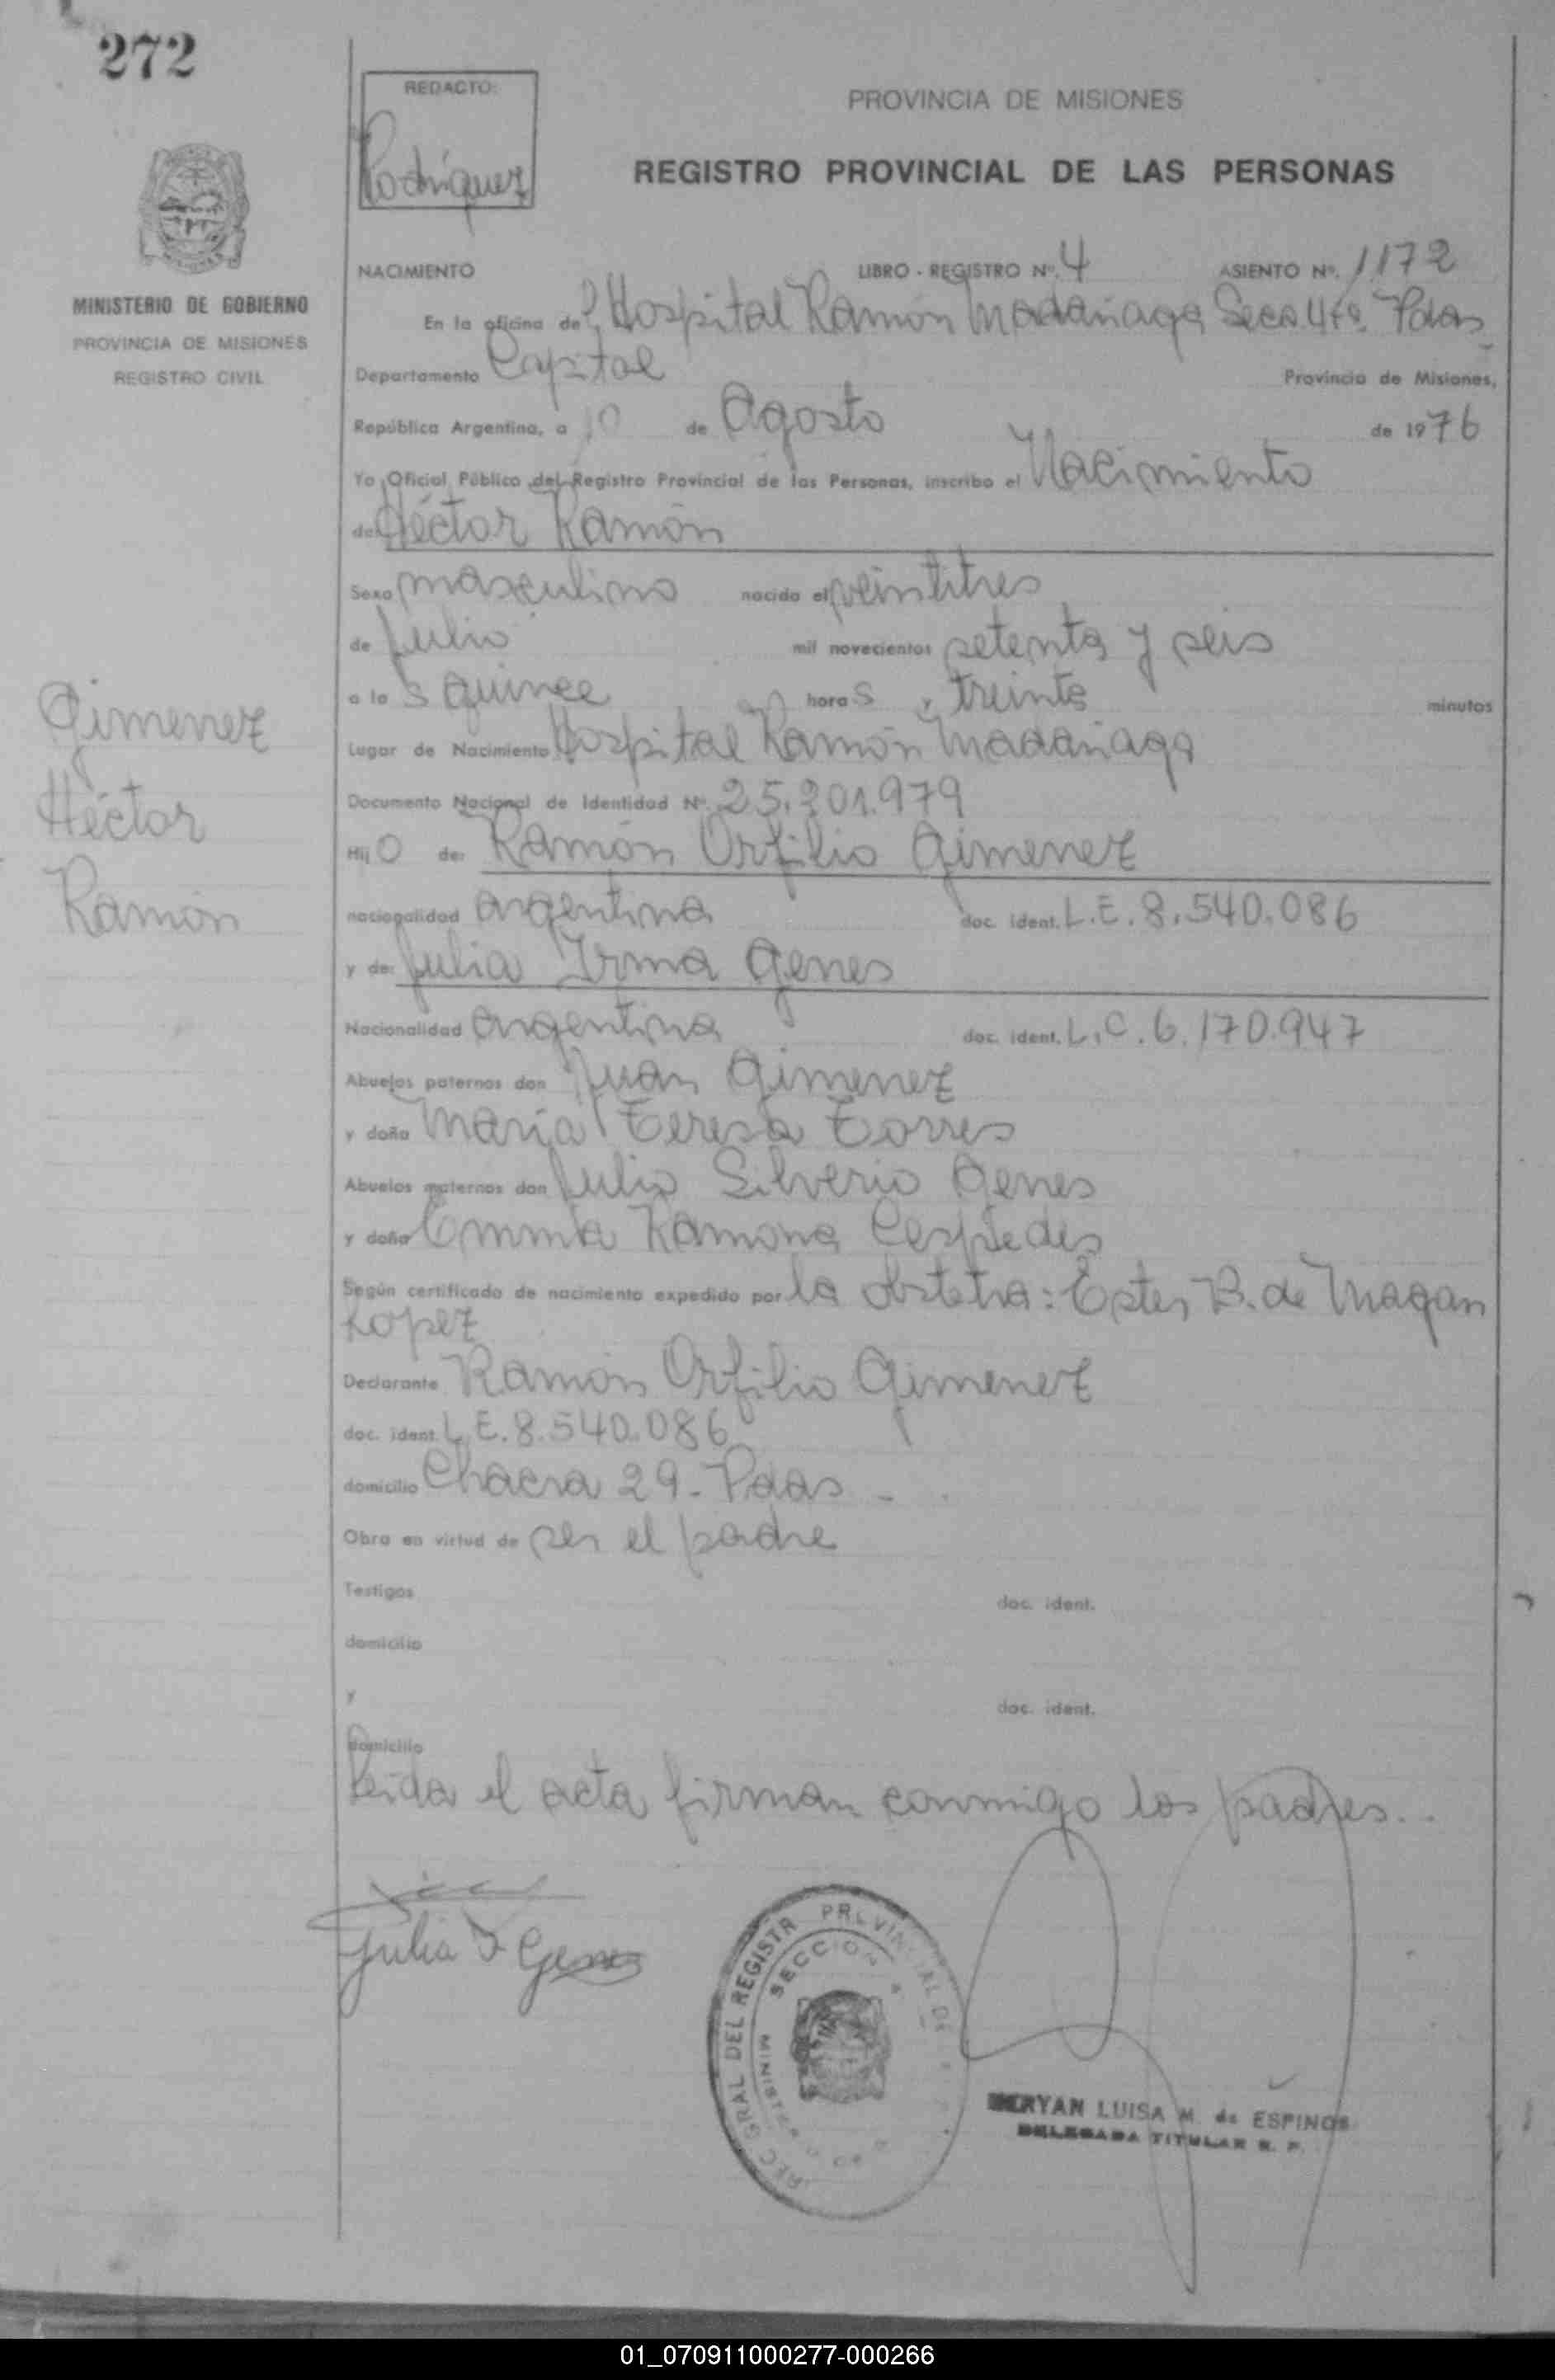 272
REDACTO:
Rodríguez
PROVINCIA DE MISIONES
REGISTRO PROVINCIAL DE LAS PERSONAS
MINISTERIO DE GOBIERNO
PROVINCIA DE MISIONES
REGISTRO CIVIL
NACIMIENTO LIBRO - REGISTRO Nº. 4 ASIENTO Nº. 1172
En la oficina del Hospital Ramón Madariaga Secc. 4ta. Pdas
Departamento Capital Provincia de Misiones,
República Argentina, a 10 de Agosto de 1976
Yo Oficial Público del Registro Provincial de las Personas, inscribo el Nacimiento
de: Héctor Ramón
Sexo masculino nacido el veintitres
de Julio mil novecientos setenta y seis
a las quince horas y treinta minutos
Lugar de Nacimiento Hospital Ramón Madariaga
Documento Nacional de Identidad Nº. 25.201.979
Hijo de: Ramón Orfilio Gimenez
nacionalidad argentina doc. ident. L.E. 8.540.086
y de: Julia Irma Genes
Nacionalidad argentina doc. ident. L.C. 6.170.947
Abuelos paternos don Juan Gimenez
y doña María Teresa Torres
Abuelos maternos don Julio Silverio Genes
y doña Emma Ramona Cespedes
Según certificado de nacimiento expedido por la obstetra: Ester B. de Magan
Lopez
Declarante Ramón Orfilio Gimenez
doc. ident. L.E. 8.540.086
domicilio Chacra 29 - Pdas -
Obra en virtud de ser el padre
Testigos doc. ident.
domicilio
y doc. ident.
domicilio
Leida el acta firman conmigo los padres..
Gimenez
Héctor
Ramón
Julia I Genes
DEL REGISTR PROVINCIAL DE
SECCION
LUISA M. de ESPINOS
DELEGADA TITULAR R. P.
01_070911000277-000266